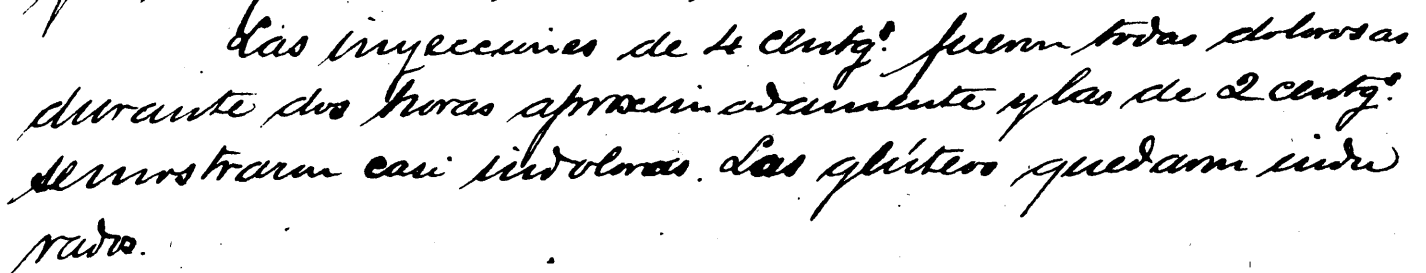 Las inyecciones de 4 centgs. fueron todas dolorosas
durante dos horas aproximadamente y las de 2 centgs.
se mostraron casi indoloras. Los glúteos quedaron indu
rados.